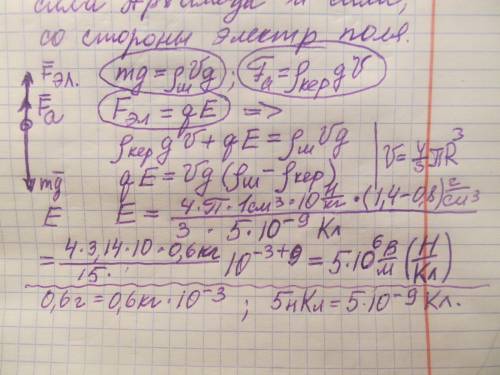 сила Архимеда и сила,
со стороны электр поля.
F̅эл. mg = ρш Vg ; Fa = ρкер g V
F̅a Fэл = qE =>
ρкер g V + qE = ρш Vg
qE = Vg (ρш − ρкер) V = 4/3 πR³
mg̅
E̅ E = 4·π·1см³·10 Н/кг·(1,4−0,8) г/см³ / 3 · 5·10⁻⁹ Кл
= 4·3,14·10·0,6кг / 15· 10⁻³⁺⁹ = 5·10⁶ В/м (Н/Кл)
0,6г = 0,6кг·10⁻³ ; 5нКл = 5·10⁻⁹ Кл.